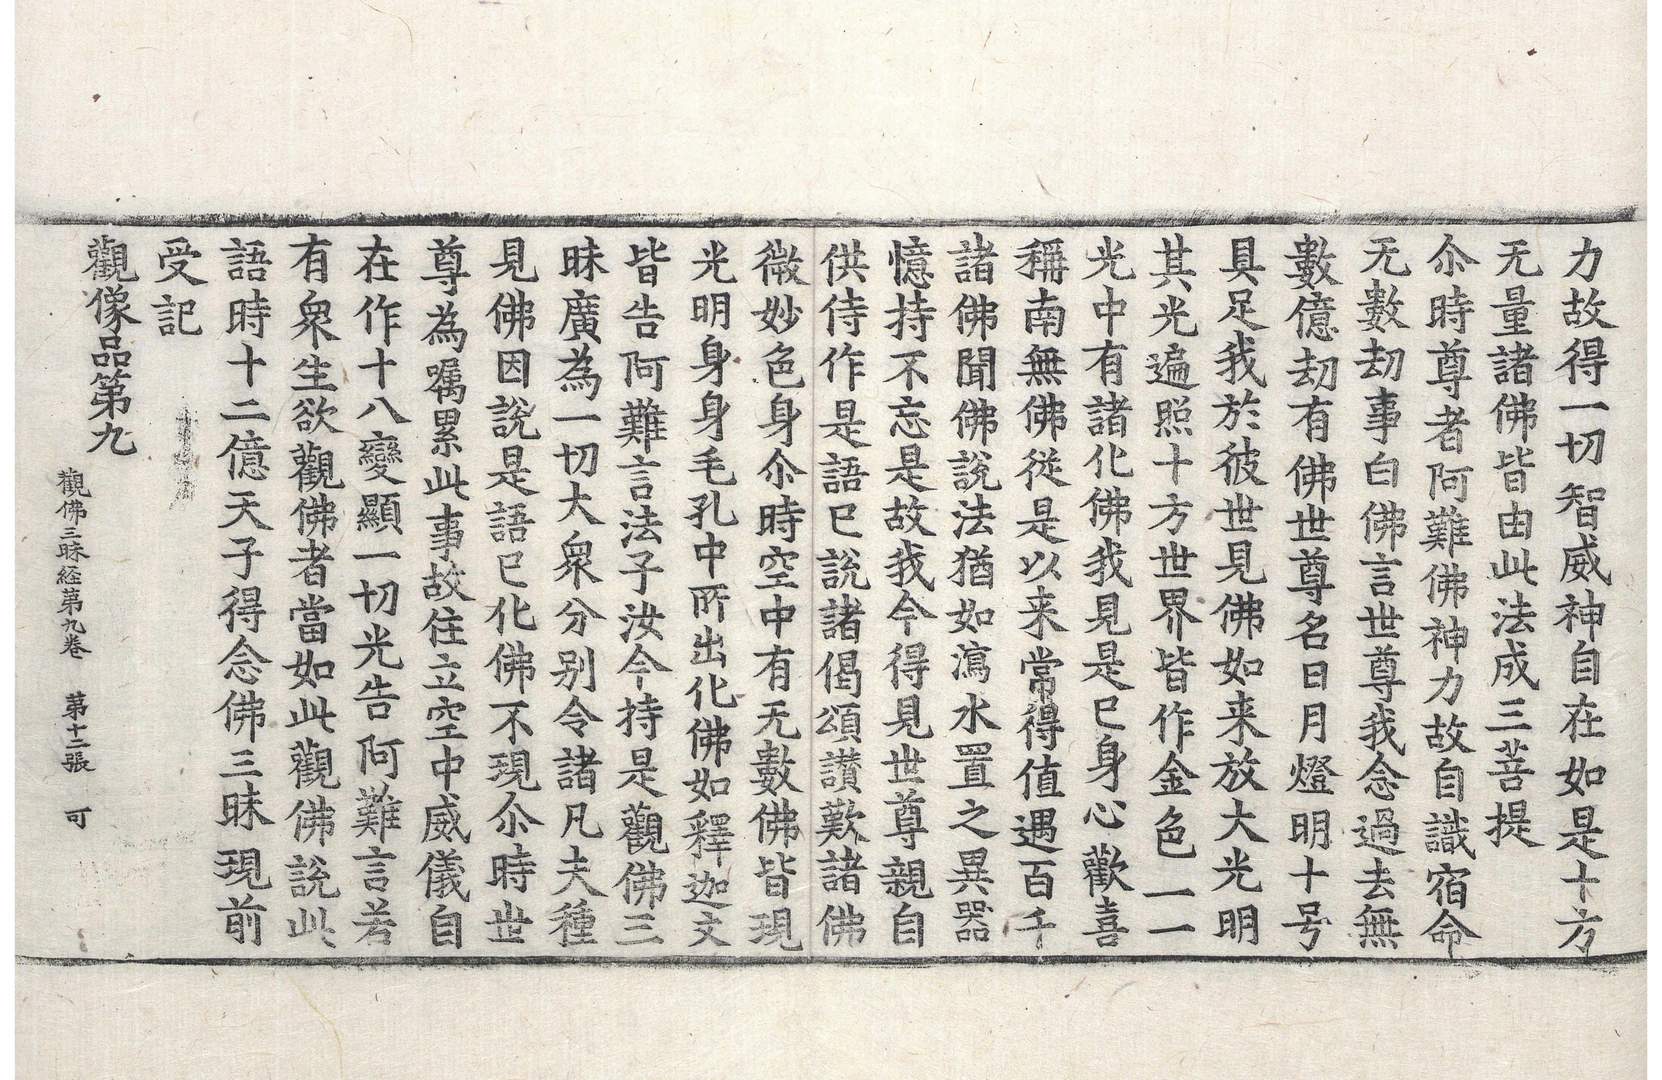 力故得一切智威神自在如是十方
无量諸佛皆由此法成三菩提
尒時尊者阿難佛神力故自識宿命
无數劫事白佛言世尊我念過去無
數億劫有佛世尊名日月燈明十号
具足我於彼世見佛如来放大光明
其光遍照十方世界皆作金色一一
光中有諸化佛我見是已身心歡喜
稱南無佛從是以来常得值遇百千
諸佛聞佛說法猶如瀉水置之異器
憶持不忘是故我今得見世尊親自
供侍作是語已說諸偈頌讃歎諸佛
微妙色身尒時空中有无數佛皆現
光明身身毛孔中所出化佛如釋迦文
皆告阿難言法子汝今持是觀佛三
昧廣為一切大衆分别令諸凡夫種
見佛因說是語已化佛不現尒時世
尊為嘱累此事故住立空中威儀自
在作十八變顯一切光告阿難言若
有衆生欲觀佛者當如此觀佛說此
語時十二億天子得念佛三昧現前
受記
觀像品第九
觀佛三昧経第九卷 第十二張 可